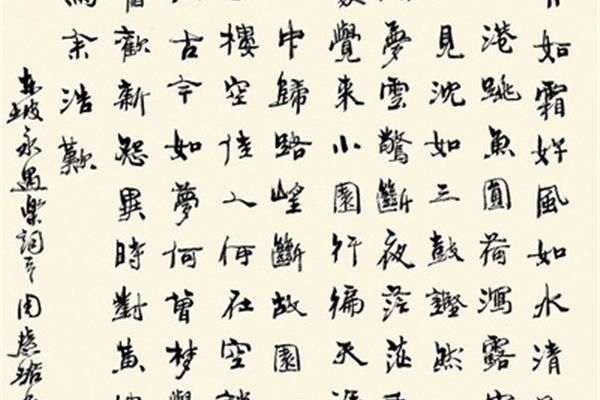 如霜好風如水清
港跳魚圓荷瀉露
見沈如三鼓鏗然
夢雲驚斷夜茫茫
覺來小園行徧天
中歸路望斷故園
樓空佳人何在空
古今如夢何曾夢
歡新怨異時對黃
余浩歎
東坡永遇樂詞 周慧珺